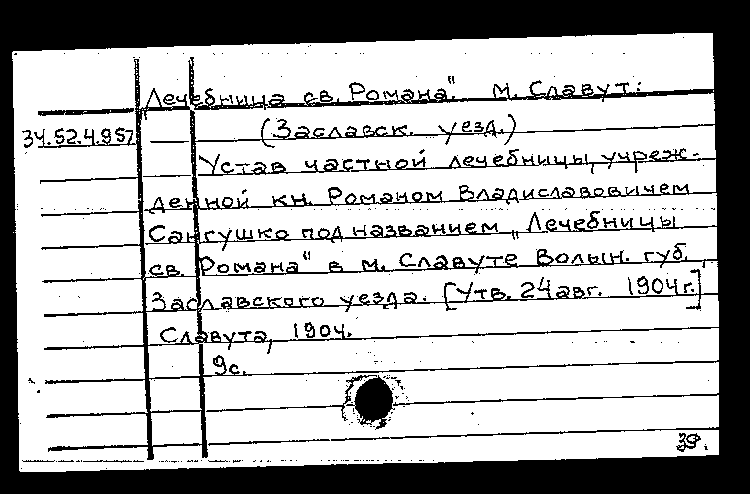 Лечебница св. Романа" м. Славут:
34.52.4.957 (Заславск. уезд.)
Устав частной лечебницы, учреж-
денной кн. Романом Владиславовичем
Сангушко под названием „Лечебницы
св. Романа" в м. Славуте Волын. губ.,
Заславского уезда. [Утв. 24 авг. 1904 г.]
Славута, 1904.
9с.